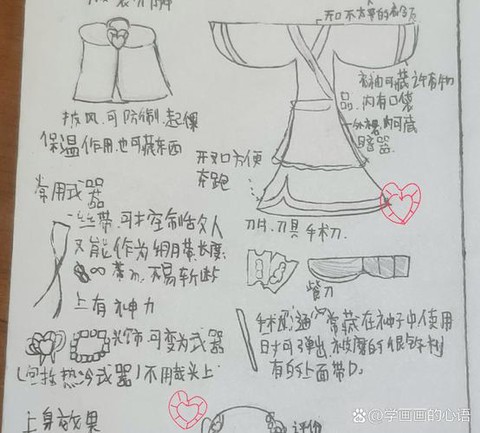 开口不太平的衣领
衣袖可藏许多物
品,内有口袋
外裙,内可藏
暗器
披风,可防御,起保
保温作用,也可藏东西
开叉口方便
奔跑
刀片,刀具 手术刀
常用武器
丝带,可半空制敌人
又能作为绸带,长度
带刀,不易斩断
上有神力
柴刀
头饰可变为武器
(包括热冷武器)不用戴头上
手术刀 常藏在袖子中使用
时可弹出,被磨的很锋利
有的上面带D。
上身效果
评价
百度@学画画的心语